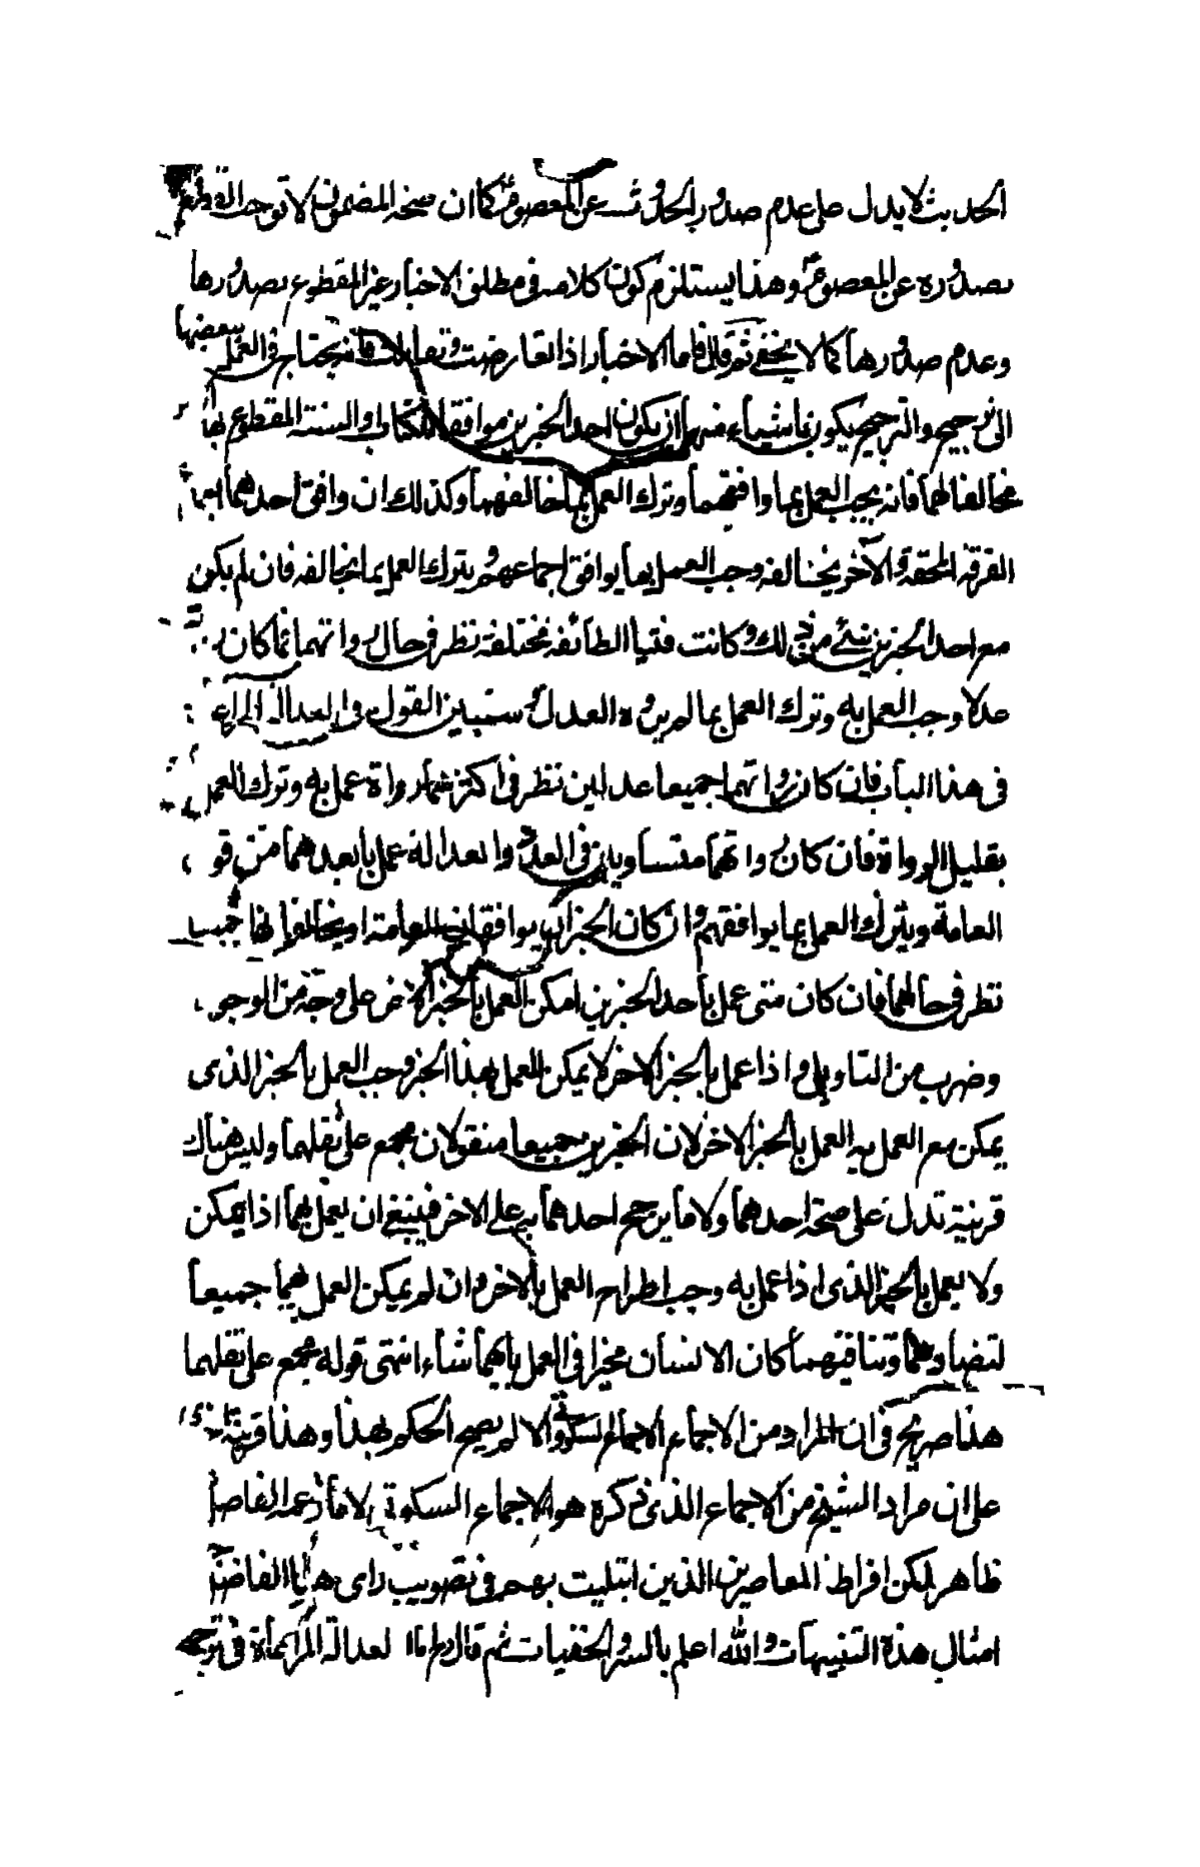 الحديث لا يدل على عدم صدور الحديث عن المعصوم كما ان صحة المضمون لا توجب القطع
بصدوره عن المعصوم وهذا يستلزم كون كلامه في مطلق الاخبار غير المقطوع بصدورها
وعدم صدورها كما لا يخفى ثم قال فاما الاخبار اذا تعارضت وتقابلت فانه يحتاج في العمل ببعضها
الى ترجيح والترجيح يكون باشياء منها ان يكون احد الخبرين موافقا للكتاب او السنة المقطوع بها
مخالفا لهما فانه يجب العمل بما وافقهما وترك العمل بما خالفهما وكذلك ان وافق احدهما اجماع
الفرقة المحقة والآخر يخالفه وجب العمل بما يوافق اجماعهم ويترك العمل بما يخالفه فان لم يكن
مع احد الخبرين شئ من ذلك وكانت فتيا الطائفة مختلفة نظر في حال رواتهما فما كان
عدلا وجب العمل به وترك العمل بما لم يروه العدل وسنبين القول في العدالة المراعاة
في هذا الباب فان كان رواتهما جميعا عدلين نظر في اكثرهما رواة عمل به وترك العمل
بقليل الرواة فان كان رواتهما متساويين في العدد والعدالة عمل بابعدهما من قو
العامة ويترك العمل بما يوافقهم وان كان الخبران يوافقان العامة او يخالفانها جميعا
نظر في حالهما فان كان متى عمل باحد الخبرين امكن العمل بالخبر الآخر على وجه من الوجوه
وضرب من التاويل واذا عمل بالخبر الاخر لا يمكن العمل بهذا الخبر وجب العمل بالخبر الذي
يمكن مع العمل به العمل بالخبر الاخر لان الخبرين جميعا منقولان مجمع على نقلهما وليس هناك
قرينة تدل على صحة احدهما ولا ما يرجح احدهما به على الاخر فينبغي ان يعمل بهما اذا يمكن
ولا يعمل بالخبر الذي اذا عمل به وجب اطراح العمل بالاخر وان لم يمكن العمل بهما جميعا
لتضادهما وتنافيهما كان الانسان مخيرا في العمل بايهما شاء انتهى قوله مجمع على نقلهما
هذا صريح في ان المراد من الاجماع الاجماع السكوتي والا لم يصح الحكم بهذا وهذا قرينة
على ان مراد الشيخ من الاجماع الذي ذكره هو الاجماع السكوتي لا ما زعمه الفاضل
ظاهر لكن افراط المعاصرين الذين ابتليت بهم في تصويب راى الفاضل
امثال هذه التنبيهات والله اعلم بالسر والخفيات ثم قال واما العدالة المراعاة في ترجيح